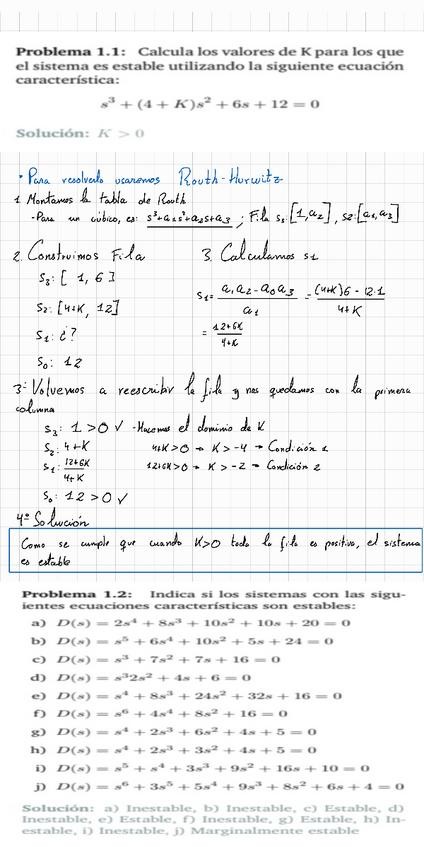 Problema 1.1: Calcula los valores de K para los que
el sistema es estable utilizando la siguiente ecuación
característica:
s³ + (4 + K)s² + 6s + 12 = 0
Solución: K > 0
• Para resolverlo usaremos Routh-Hurwitz
1. Montamos la tabla de Routh
- Para un cúbico, es: s³+a₁s²+a₂s+a₃ ; Fila s₃: [1,a₂], s₂: [a₁,a₃]
2. Construimos Fila
S₃: [ 1, 6 ]
S₂: [4+K, 12]
S₁: ¿?
S₀: 12
3. Calculamos s₁
S₁ = (a₁a₂ - a₀a₃)/a₁ = ((4+K)6 - 12·1)/(4+K)
= (12+6K)/(4+K)
3º Volvemos a reescribir la fila y nos quedamos con la primera
columna
S₃: 1 > 0 ✓ - Hacemos el dominio de K
S₂: 4+K 4+K>0 → K>-4 → Condición 1
S₁: (12+6K)/(4+K) 12+6K>0 → K>-2 → Condición 2
S₀: 12 > 0 ✓
4º Solución
Como se cumple que cuando K>0 toda la fila es positiva, el sistema
es estable
Problema 1.2: Indica si los sistemas con las sigu-
ientes ecuaciones características son estables:
a) D(s) = 2s⁴ + 8s³ + 10s² + 10s + 20 = 0
b) D(s) = s⁵ + 6s⁴ + 10s² + 5s + 24 = 0
c) D(s) = s³ + 7s² + 7s + 16 = 0
d) D(s) = s³2s² + 4s + 6 = 0
e) D(s) = s⁴ + 8s³ + 24s² + 32s + 16 = 0
f) D(s) = s⁶ + 4s⁴ + 8s² + 16 = 0
g) D(s) = s⁴ + 2s³ + 6s² + 4s + 5 = 0
h) D(s) = s⁴ + 2s³ + 3s² + 4s + 5 = 0
i) D(s) = s⁵ + s⁴ + 3s³ + 9s² + 16s + 10 = 0
j) D(s) = s⁶ + 3s⁵ + 5s⁴ + 9s³ + 8s² + 6s + 4 = 0
Solución: a) Inestable, b) Inestable, c) Estable, d)
Inestable, e) Estable, f) Inestable, g) Estable, h) In-
estable, i) Inestable, j) Marginalmente estable